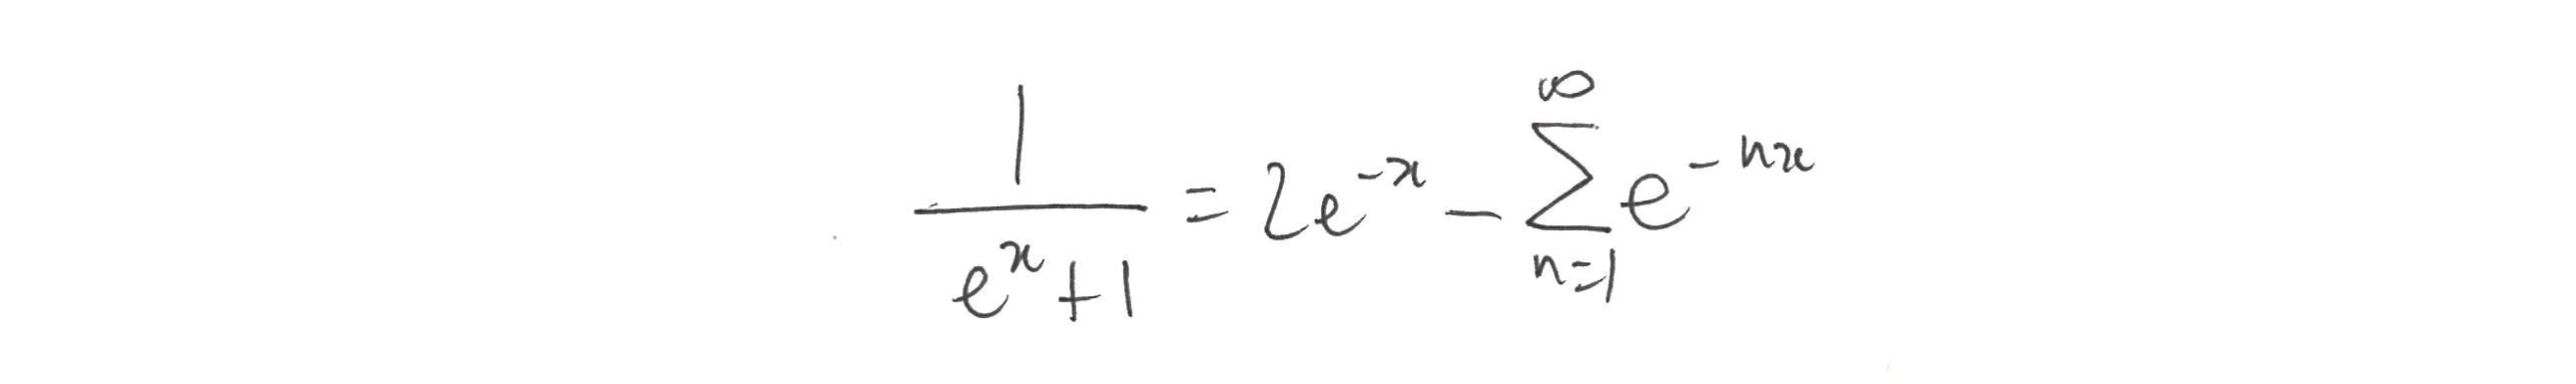 \frac{1}{e^x+1} = 2e^{-x} - \sum_{n=1}^{\infty} e^{-nx}